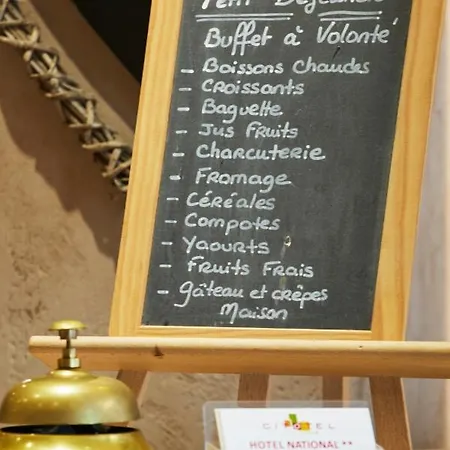 Petit Déjeuner
Buffet à Volonté
- Boissons Chaudes
- Croissants
- Baguette
- Jus Fruits
- Charcuterie
- Fromage
- Céréales
- Compotes
- Yaourts
- Fruits Frais
- Gâteau et crêpes
Maison
CITOTEL
HOTEL NATIONAL **